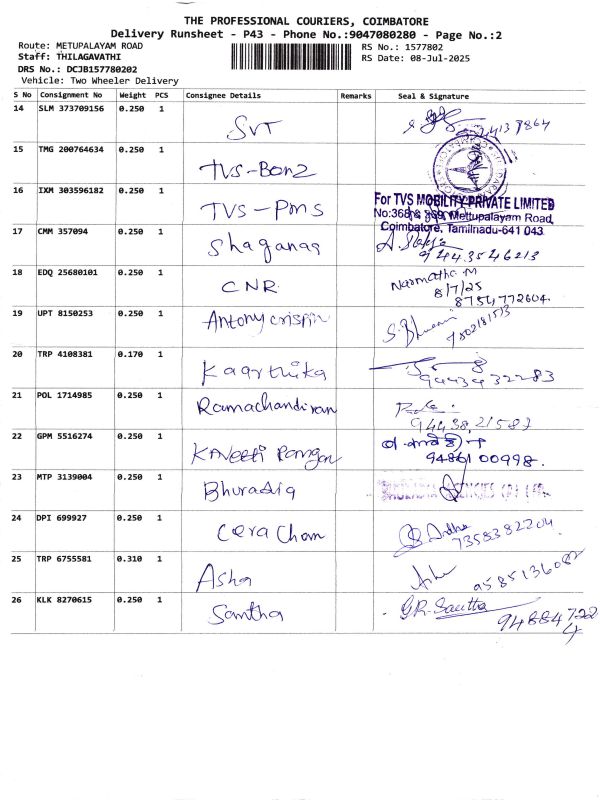 THE PROFESSIONAL COURIERS, COIMBATORE
Delivery Runsheet - P43 - Phone No.:9047080280 - Page No.:2
Route: METUPALAYAM ROAD
Staff: THILAGAVATHI
DRS No.: DCJB157780202
Vehicle: Two Wheeler Delivery
RS No.: 1577802
RS Date: 08-Jul-2025
S No Consignment No Weight PCS Consignee Details Remarks Seal & Signature
14 SLM 373709156 0.250 1 SVT
15 TMG 200764634 0.250 1 TVS-Bonz
16 IXM 303596182 0.250 1 TVS-Pms
For TVS MOBILITY PRIVATE LIMITED
No:368 & 369, Mettupalayam Road,
Coimbatore, Tamilnadu-641 043
17 CMM 357094 0.250 1 Shaganas
9443546213
18 EDQ 25680101 0.250 1 CNR Narmatha M
8/7/25
8754772604
19 UPT 8150253 0.250 1 Antony crispin
20 TRP 4108381 0.170 1 Kaarthika
9443932283
21 POL 1714985 0.250 1 Ramachandiran
9443821587
22 GPM 5516274 0.250 1
9486100998.
23 MTP 3139004 0.250 1
24 DPI 699927 0.250 1 Cera Chem
7358382204
25 TRP 6755581 0.310 1 Asha Asha 9585136082
26 KLK 8270615 0.250 1 Santha G.R. Santha
948847224